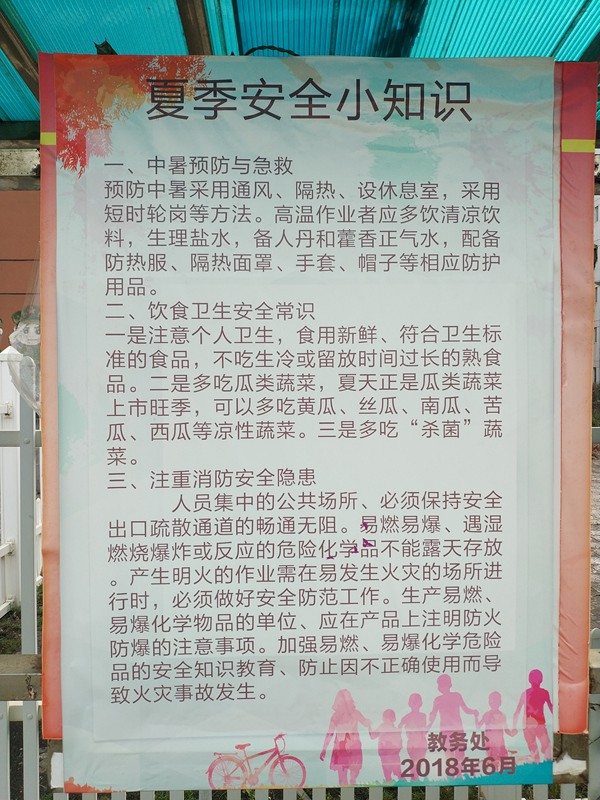 夏季安全小知识
一、中暑预防与急救
预防中暑采用通风、隔热、设休息室，采用
短时轮岗等方法。高温作业者应多饮清凉饮
料，生理盐水，备人丹和藿香正气水，配备
防热服、隔热面罩、手套、帽子等相应防护
用品。
二、饮食卫生安全常识
一是注意个人卫生，食用新鲜、符合卫生标
准的食品，不吃生冷或留放时间过长的熟食
品。二是多吃瓜类蔬菜，夏天正是瓜类蔬菜
上市旺季，可以多吃黄瓜、丝瓜、南瓜、苦
瓜、西瓜等凉性蔬菜。三是多吃“杀菌”蔬
菜。
三、注重消防安全隐患
人员集中的公共场所、必须保持安全
出口疏散通道的畅通无阻。易燃易爆、遇湿
燃烧爆炸或反应的危险化学品不能露天存放
。产生明火的作业需在易发生火灾的场所进
行时，必须做好安全防范工作。生产易燃、
易爆化学物品的单位、应在产品上注明防火
防爆的注意事项。加强易燃、易爆化学危险
品的安全知识教育、防止因不正确使用而导
致火灾事故发生。
教务处
2018年6月